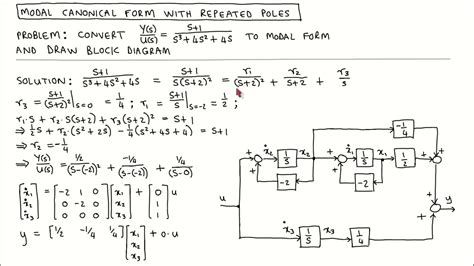 MODAL CANONICAL FORM WITH REPEATED POLES
PROBLEM: CONVERT Y(s)/U(s) = s+1/s³+4s²+4s TO MODAL FORM
AND DRAW BLOCK DIAGRAM
SOLUTION: s+1/s³+4s²+4s = s+1/s(s+2)² = r₁/(s+2)² + r₂/s+2 + r₃/s
r₃ = s+1/(s+2)²|s=0 = 1/4 ; r₁ = s+1/s|s=-2 = 1/2 ;
r₁·s + r₂·s(s+2) + r₃(s+2)² = s+1
⇒ 1/2s + r₂(s²+2s) + 1/4(s²+4s+4) = s+1
⇒ r₂ = -1/4
⇒ Y(s)/U(s) = 1/2/(s-(-2))² + -1/4/s-(-2) + 1/4/(s-0)
[ẋ₁ ẋ₂ ẋ₃] = [-2 1 0 0 -2 0 0 0 0] [x₁ x₂ x₃] + [0 1 1] u
y = [1/2 -1/4 1/4] [x₁ x₂ x₃] + 0·u
-1/4
ẋ₂ x₂ ẋ₁ x₁
+ 1/s + 1/s 1/2 +
+ -2 + -2 +
u + y
ẋ₃ x₃ +
1/s 1/4